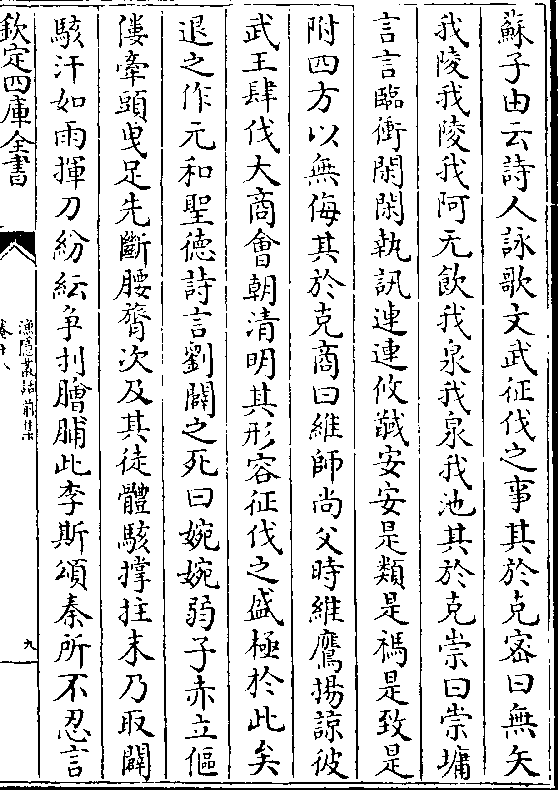 蘇子由云詩人詠歌文武征伐之事其於克密曰無矢
我陵我陵我阿无飲我泉我泉我池其於克崇曰崇墉
言言臨衝閑閑執訊連連攸馘安安是類是禡是致是
附四方以無侮其於克商曰維師尚父時維鷹揚諒彼
武王肆伐大商會朝清明其形容征伐之盛極於此矣
退之作元和聖德詩言劉闢之死曰婉婉弱子赤立傴
僂牽頭曳足先斷腰膂次及其徒體駭撑拄末乃取闢
駭汗如雨揮刀紛紜争刌膾脯此李斯頌秦所不忍言
欽定四庫全書
漁隱叢話前集
九